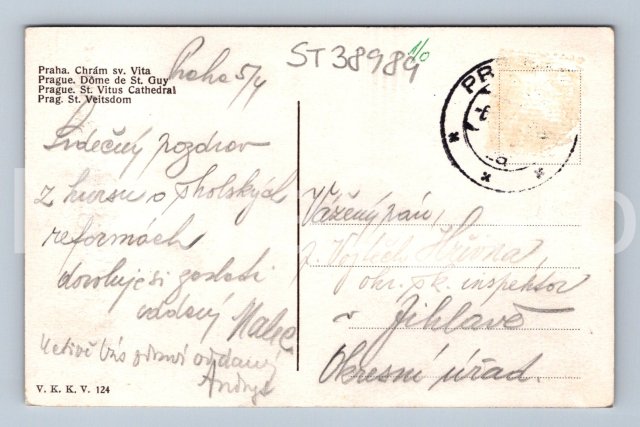 Praha. Chrám sv. Vita
Prague. Dôme de St. Guy
Prague. St. Vitus Cathedral
Prag. St. Veitsdom
Praha 5/4
ST 38989
1/0
PR
Srdečný pozdrav
z kursu o školských
reformách
dovoluje si zaslati
oddaný Malec
Uctivě Vás zdraví oddaný
Andrys
Vážený pán,
p. Vojtěch Hřivna,
okr. šk. inspektor
v Jihlavě
Okresní úřad.
V. K. K. V. 124